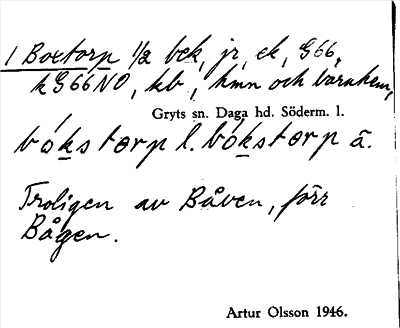 1 Boxtorp 1/2 bek, jr, ek, G66,
k G66 NO, kb, hmn och barnhem,
Gryts sn. Daga hd. Söderm. l.
bókstorp l. bókstorp ā.
Troligen av Båven, förr
Bågen.
Artur Olsson 1946.